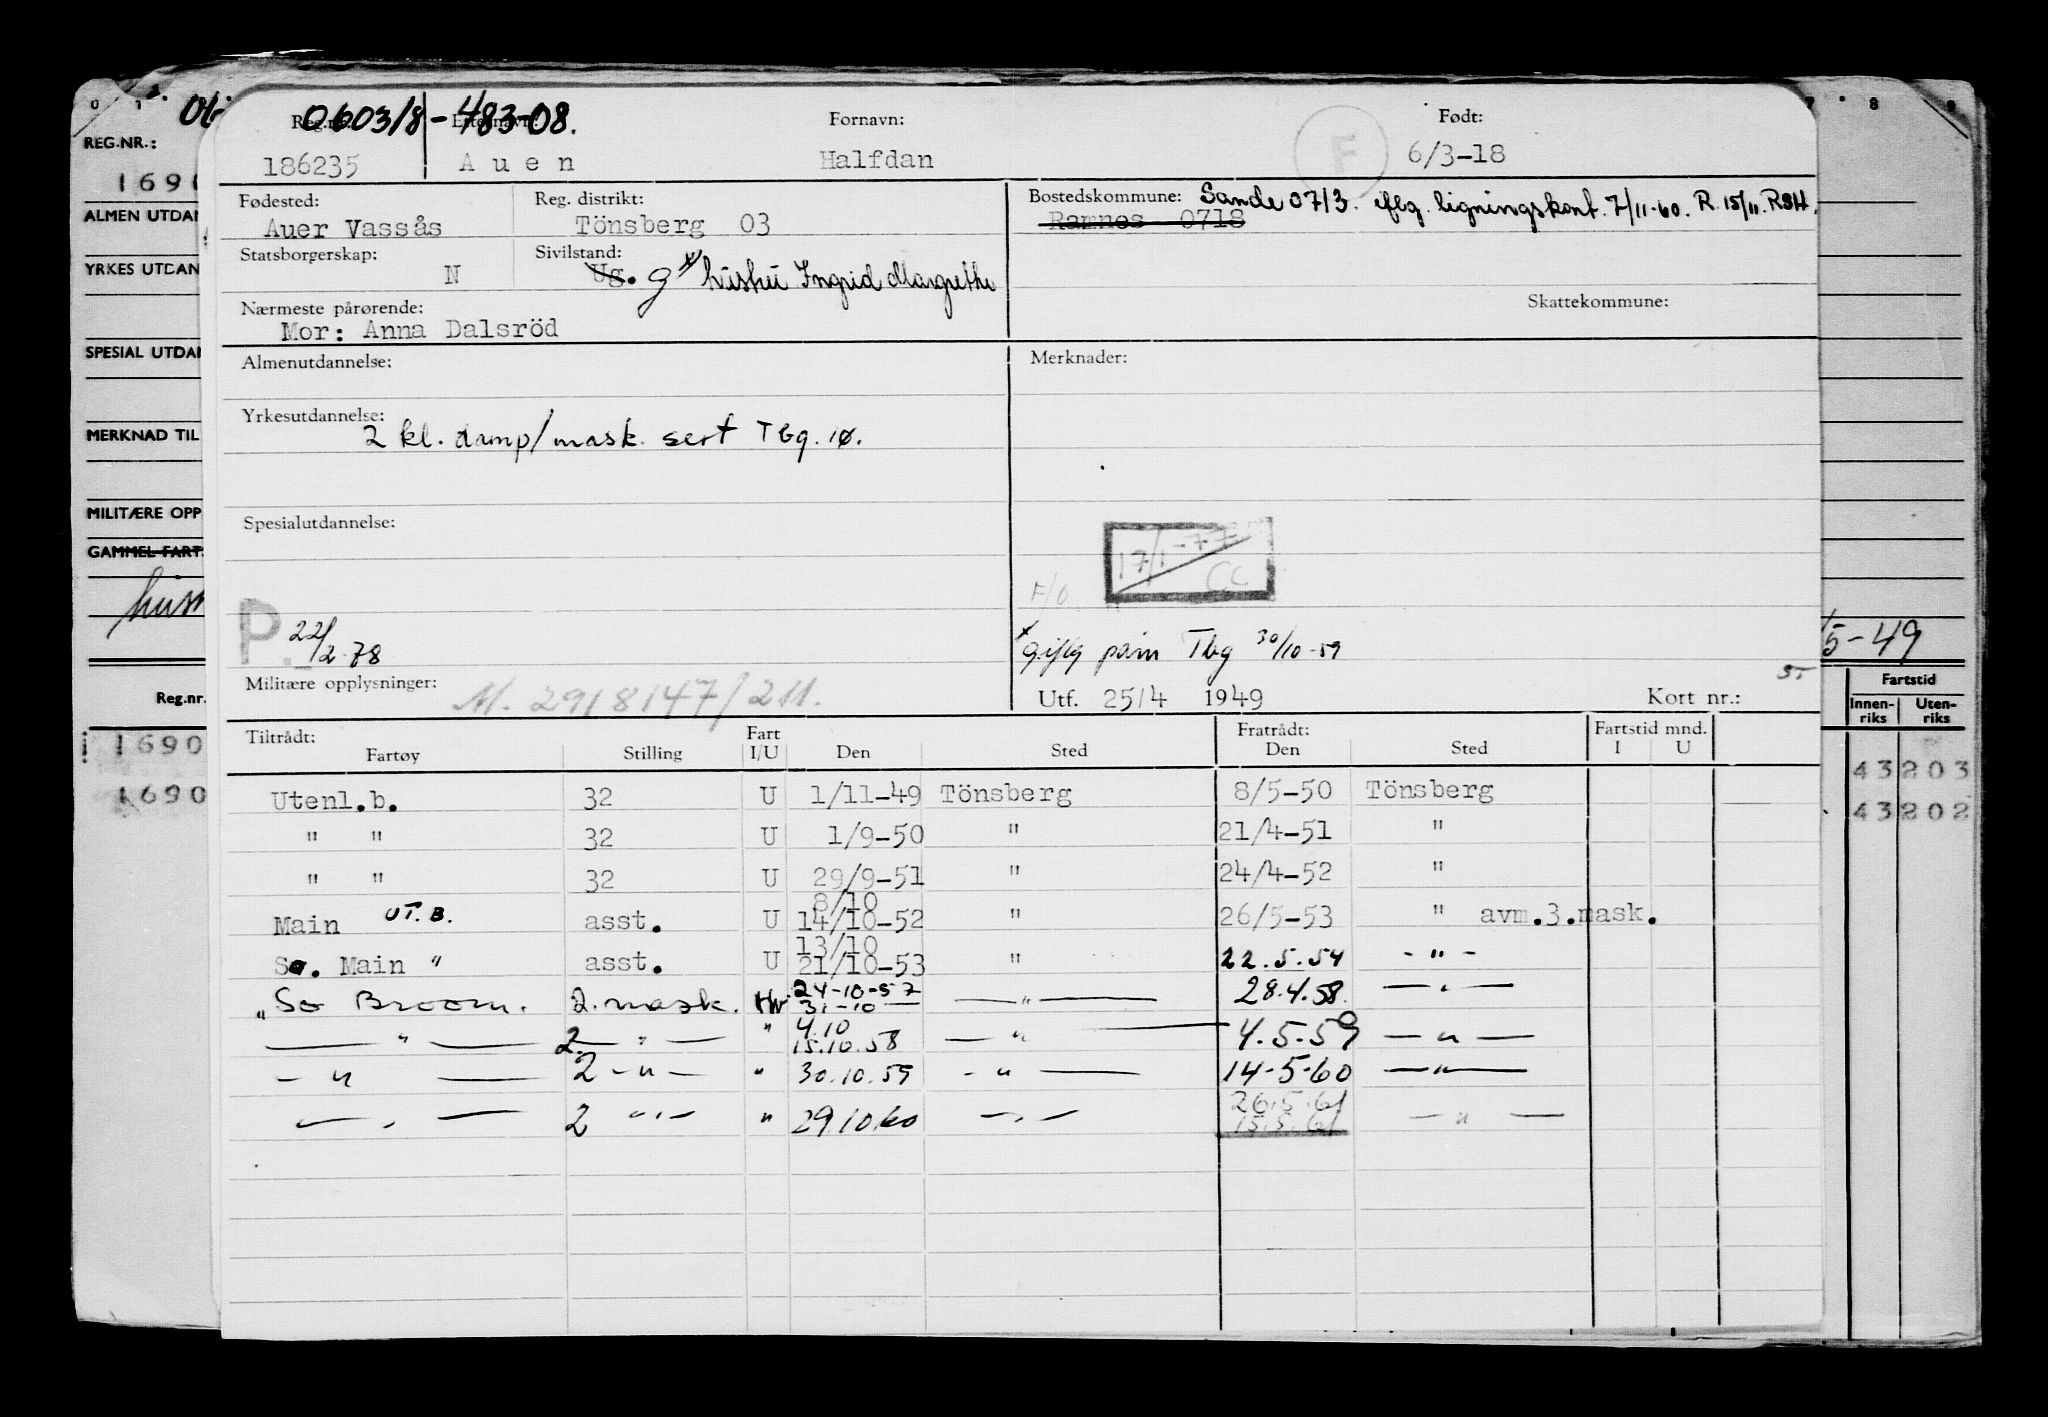 0 1
7 8 9
060318-483-08.
Reg.nr. Etternavn: Fornavn: Født:
186235 Auen Halfdan F 6/3-18
REG.NR.:
169
Fødested: Reg. distrikt: Bostedskommune: Sande 0713. iflg. ligningskont. 7/11-60. R. 15/11. RSH.
Auer Vassås Tönsberg 03 Ramnes 0718
ALMEN UTDAN
Statsborgerskap: Sivilstand:
N Ug. g x hustru Ingrid Margrethe
YRKES UTDAN
Nærmeste pårørende: Skattekommune:
Mor: Anna Dalsröd
SPESIAL UTDAN
Almenutdannelse: Merknader:
Yrkesutdannelse:
2 kl. damp/mask. sert Tbg. 10.
MERKNAD TIL
MILITÆRE OPP
Spesialutdannelse:
17/1-77 CC
GAMMEL FART
F/O
P. 22/2-78
x giftg påm Tbg 30/10-59
5-49
Militære opplysninger: M. 2918147/211. Utf. 25/4 1949 Kort nr.:
Reg.nr.
Fartstid
Innen-riks Uten-riks
Tiltrådt: Fart Fratrådt: Fartstid mnd.
Fartøy Stilling I/U Den Sted Den Sted I U
1690
43203
1690
43202
Utenl.b. 32 U 1/11-49 Tönsberg 8/5-50 Tönsberg
" " 32 U 1/9-50 " 21/4-51 "
" " 32 U 29/9-51 " 24/4-52 "
8/10
Main UT.B. asst. U 14/10-52 " 26/5-53 " avm.3.mask.
13/10
So. Main " asst. U 21/10-53 " 22.5.54 - " -
24-10-57
" So Broom. 2. mask. Hv 31-10 — " — 28.4.58. — " —
4.10
— " — 2. — " — " 15.10.58 — " — 4.5.59 — " —
— " — 2 — " — " 30.10.59 - " — 14-5-60 — " —
26.5.61
— " — 2 — " — " 29.10.60 — " — 15.5.61 — " —